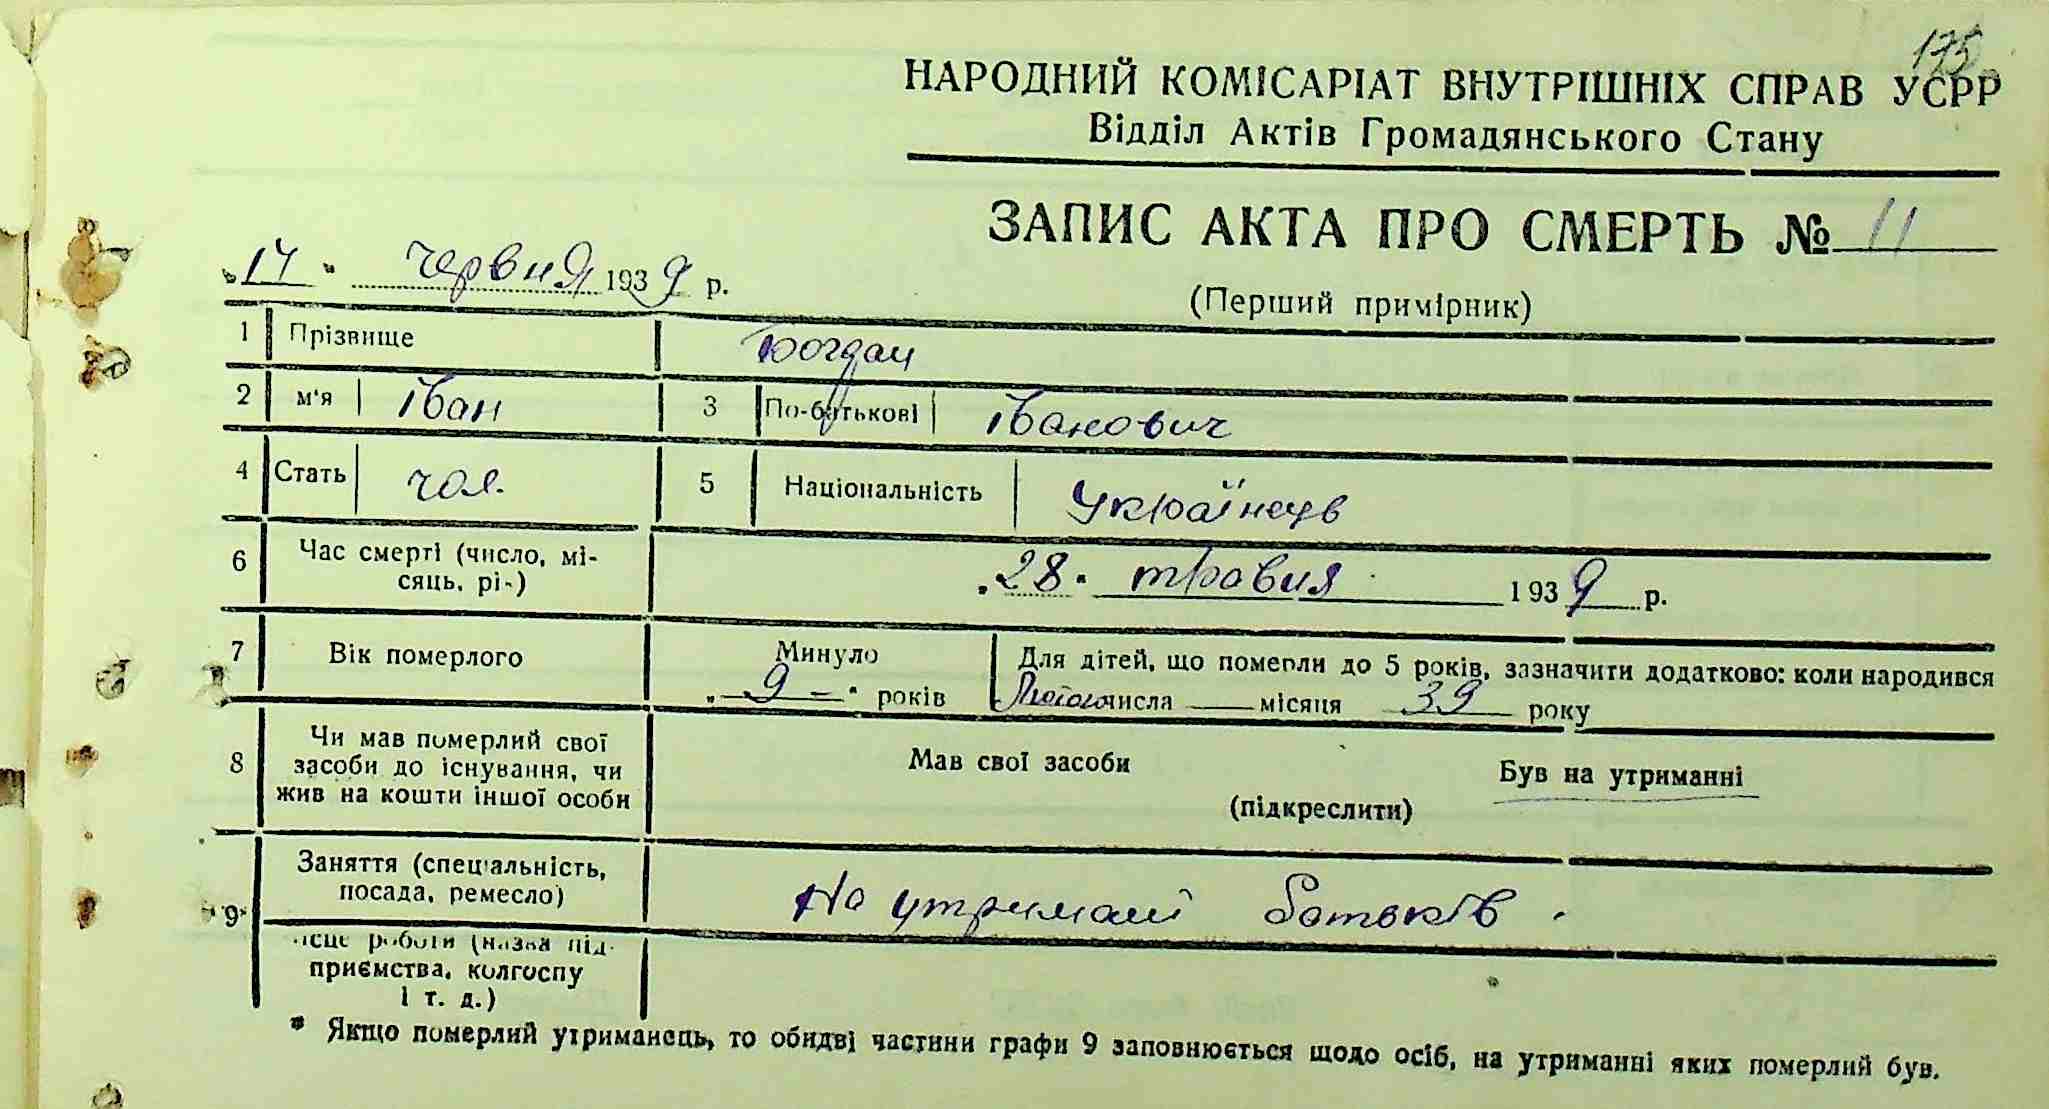 175
НАРОДНИЙ КОМІСАРІАТ ВНУТРІШНІХ СПРАВ УСРР
Відділ Актів Громадянського Стану
ЗАПИС АКТА ПРО СМЕРТЬ № 11
„14" червня 1939 р.
(Перший примірник)
1 Прізвище Богдан
2 м'я Іван 3 По-батькові Іванович
4 Стать чол. 5 Національність Українець
6 Час смерті (число, мі-
сяць, рі-) „28" травня 1939 р.
7 Вік померлого Минуло „9" років Для дітей, що померли до 5 років, зазначити додатково: коли народився
Лютого числа — місяця 39 року
8 Чи мав померлий свої
засоби до існування, чи
жив на кошти іншої особи
Мав свої засоби Був на утриманні
(підкреслити)
9* Заняття (спеціальність,
посада, ремесло) На утримані батьків.
ісце роботи (назва під-
приємства, колгоспу
і т. д.)
* Якщо померлий утриманець, то обидві частини графи 9 заповнюється щодо осіб, на утриманні яких померлий був.